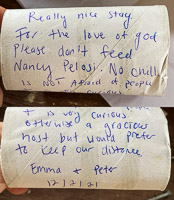 Really nice stay.
For the love of god
Please don't feed
Nancy Pelosi. No chill
is NOT Afraid of people
+ is very curious
otherwise a gracious
host but would prefer
to keep our distance
Emma + Peter
12/2/21